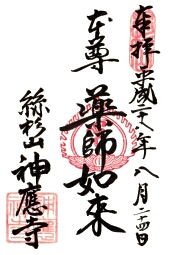 奉拝 平成二十八年八月二十四日
本尊 薬師如来
絲杉山 神應寺